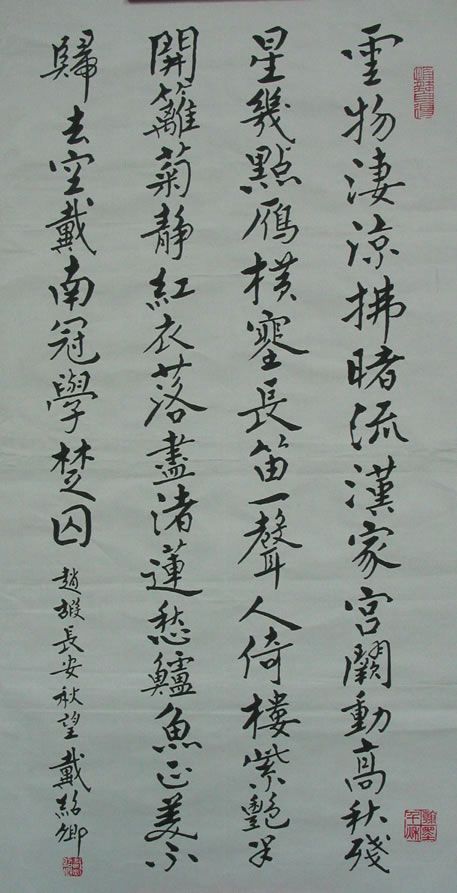 雲物淒涼拂曙流漢家宮闕動高秋殘
星幾點雁橫塞長笛一聲人倚樓紫艷半
開籬菊靜紅衣落盡渚蓮愁鱸魚正美不
歸去空戴南冠學楚囚
趙嘏長安秋望 戴紹卿